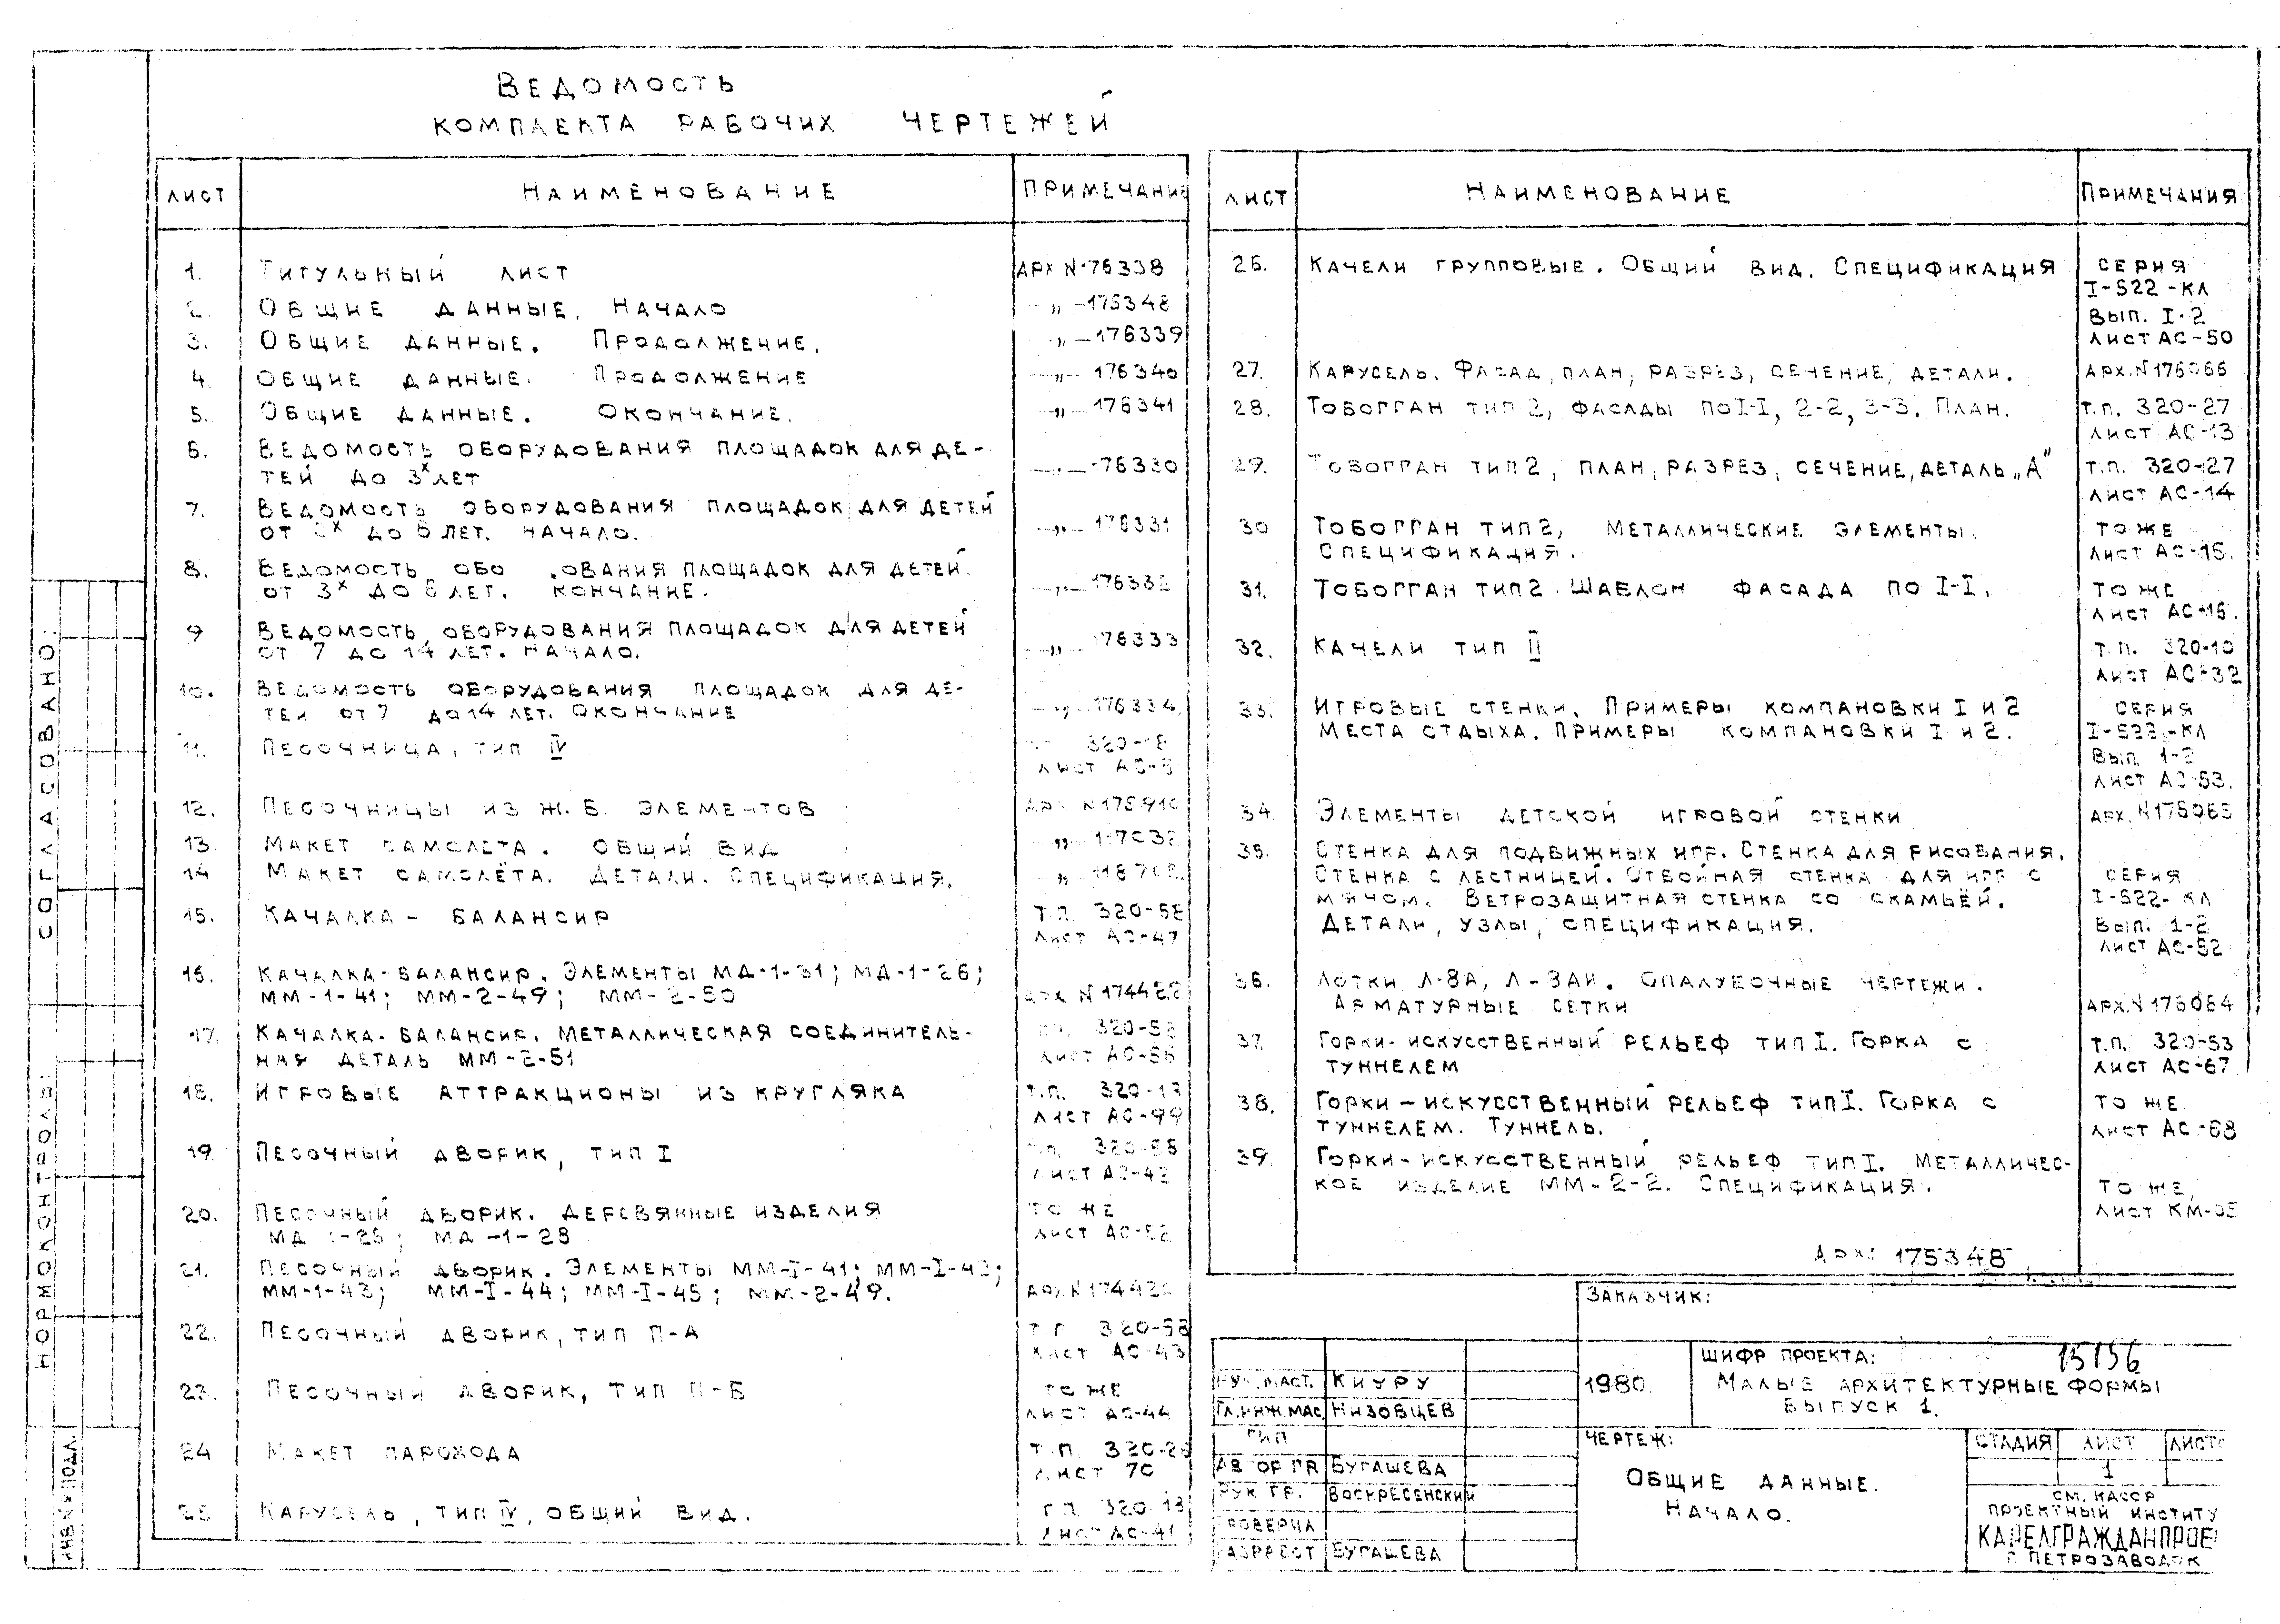 ВЕДОМОСТЬ
КОМПЛЕКТА РАБОЧИХ ЧЕРТЕЖЕЙ
ЛИСТ НАИМЕНОВАНИЕ ПРИМЕЧАНИЕ
1. ТИТУЛЬНЫЙ ЛИСТ АРХ
2. ОБЩИЕ ДАННЫЕ. НАЧАЛО —„—175348
3. ОБЩИЕ ДАННЫЕ. ПРОДОЛЖЕНИЕ. —„—176339
4. ОБЩИЕ ДАННЫЕ. ПРОДОЛЖЕНИЕ —„—176340
5. ОБЩИЕ ДАННЫЕ. ОКОНЧАНИЕ. —„—176341
6. ВЕДОМОСТЬ ОБОРУДОВАНИЯ ПЛОЩАДОК ДЛЯ ДЕ-
ТЕЙ ДО 3х ЛЕТ
7. ВЕДОМОСТЬ ОБОРУДОВАНИЯ ПЛОЩАДОК ДЛЯ ДЕТЕЙ
ОТ 3х ДО 6 ЛЕТ. НАЧАЛО. —„—176331
8. ВЕДОМОСТЬ ОБО .ОВАНИЯ ПЛОЩАДОК ДЛЯ ДЕТЕЙ
ОТ 3х ДО 6 ЛЕТ. КОНЧАНИЕ. —„—
9. ВЕДОМОСТЬ ОБОРУДОВАНИЯ ПЛОЩАДОК ДЛЯ ДЕТЕЙ
ОТ 7 ДО 14 ЛЕТ. НАЧАЛО. —„—176333
10. ВЕДОМОСТЬ ОБОРУДОВАНИЯ ПЛОЩАДОК ДЛЯ ДЕ-
ТЕЙ ОТ 7 ДО 14 ЛЕТ. ОКОНЧАНИЕ —„—176334
11. ПЕСОЧНИЦА, ТИП IV
ЛИСТ
12. ПЕСОЧНИЦЫ ИЗ Ж.Б. ЭЛЕМЕНТОВ АРХ. N175910
13. МАКЕТ САМОЛЕТА. ОБЩИЙ ВИД
14 МАКЕТ САМОЛЁТА. ДЕТАЛИ. СПЕЦИФИКАЦИЯ.
15. КАЧАЛКА - БАЛАНСИР Т.П. 320-58
ЛИСТ АС-47
16. КАЧАЛКА-БАЛАНСИР. ЭЛЕМЕНТЫ МД-1-31; МД-1-26;
ММ-1-41; ММ-2-49; ММ-2-50 АРХ N174422
17. КАЧАЛКА-БАЛАНСИР. МЕТАЛЛИЧЕСКАЯ СОЕДИНИТЕЛЬ-
НАЯ ДЕТАЛЬ ММ-2-51 ЛИСТ
18. ИГРОВЫЕ АТТРАКЦИОНЫ ИЗ КРУГЛЯКА Т.П.
ЛИСТ АС-99
19. ПЕСОЧНЫЙ ДВОРИК, ТИП I
ЛИСТ АС-42
20. ПЕСОЧНЫЙ ДВОРИК. ДЕРЕВЯННЫЕ ИЗДЕЛИЯ ТО ЖЕ
МД-1-25; МД-1-28 ЛИСТ
21. ПЕСОЧНЫЙ ДВОРИК. ЭЛЕМЕНТЫ ММ-I-41; ММ-I-42;
ММ-1-43; ММ-I-44; ММ-I-45; ММ-2-49.
22. ПЕСОЧНЫЙ ДВОРИК, ТИП П-А 320-58
ЛИСТ АС-43
23. ПЕСОЧНЫЙ ДВОРИК, ТИП П-Б ТО ЖЕ
ЛИСТ АС-44
24 МАКЕТ ПАРОХОДА Т.П.
ЛИСТ 70
25 КАРУСЕЛЬ, ТИП IV, ОБЩИЙ ВИД.
ЛИСТ АС-41
ЛИСТ НАИМЕНОВАНИЕ ПРИМЕЧАНИЯ
26. КАЧЕЛИ ГРУППОВЫЕ. ОБЩИЙ ВИД. СПЕЦИФИКАЦИЯ СЕРИЯ
I-522-КЛ
ВЫП. I-2
ЛИСТ АС-50
27. КАРУСЕЛЬ. ФАСАД, ПЛАН, РАЗРЕЗ, СЕЧЕНИЕ, ДЕТАЛИ. АРХ.N176066
28. ТОБОГГАН ТИП 2, ФАСАДЫ ПО I-I, 2-2, 3-3. ПЛАН. Т.П. 320-27
ЛИСТ АС-13
29. ТОБОГГАН ТИП 2, ПЛАН, РАЗРЕЗ, СЕЧЕНИЕ, ДЕТАЛЬ „А" Т.П. 320-27
ЛИСТ АС-14
30 ТОБОГГАН ТИП 2, МЕТАЛЛИЧЕСКИЕ ЭЛЕМЕНТЫ. ТО ЖЕ
СПЕЦИФИКАЦИЯ. ЛИСТ АС-15.
31. ТОБОГГАН ТИП 2 ШАБЛОН ФАСАДА ПО I-I. ТО ЖЕ
ЛИСТ АС-16.
32. КАЧЕЛИ ТИП II Т.П. 320-10
ЛИСТ АС-32
33. ИГРОВЫЕ СТЕНКИ. ПРИМЕРЫ КОМПАНОВКИ I И 2 СЕРИЯ
МЕСТА ОТДЫХА. ПРИМЕРЫ КОМПАНОВКИ I И 2. I-522-КЛ
ВЫП 1-2
ЛИСТ АС-53.
34 ЭЛЕМЕНТЫ ДЕТСКОЙ ИГРОВОЙ СТЕНКИ АРХ.N176065
35. СТЕНКА ДЛЯ ПОДВИЖНЫХ ИГР. СТЕНКА ДЛЯ РИСОВАНИЯ.
СТЕНКА С ЛЕСТНИЦЕЙ. ОТБОЙНАЯ СТЕНКА ДЛЯ ИГР С СЕРИЯ
МЯЧОМ. ВЕТРОЗАЩИТНАЯ СТЕНКА СО СКАМЬЁЙ. I-522-КЛ
ДЕТАЛИ, УЗЛЫ, СПЕЦИФИКАЦИЯ. ВЫП. 1-2
ЛИСТ АС-52
36. ЛОТКИ Л-8А, Л-3АИ. ОПАЛУБОЧНЫЕ ЧЕРТЕЖИ.
АРМАТУРНЫЕ СЕТКИ АРХ.N176064
37. ГОРКИ-ИСКУССТВЕННЫЙ РЕЛЬЕФ ТИП I. ГОРКА С Т.П. 320-53
ТУННЕЛЕМ ЛИСТ АС-67
38. ГОРКИ-ИСКУССТВЕННЫЙ РЕЛЬЕФ ТИП I. ГОРКА С ТО ЖЕ
ТУННЕЛЕМ. ТУННЕЛЬ. ЛИСТ АС-68
39. ГОРКИ-ИСКУССТВЕННЫЙ РЕЛЬЕФ ТИП I. МЕТАЛЛИЧЕС-
КОЕ ИЗДЕЛИЕ ММ-2-2. СПЕЦИФИКАЦИЯ. ТО ЖЕ,
ЛИСТ КМ-05
АРХ: 175348
ЗАКАЗЧИК:
ШИФР ПРОЕКТА: 15156
РУК.МАСТ. КИУРУ 1980. МАЛЫЕ АРХИТЕКТУРНЫЕ ФОРМЫ
ГЛ.ИНЖ МАС НИЗОВЦЕВ ВЫПУСК 1.
ГИП ЧЕРТЕЖ: СТАДИЯ ЛИСТ ЛИСТО
АВТОР ПР. БУГАШЕВА ОБЩИЕ ДАННЫЕ. 1
РУК ГР. ВОСКРЕСЕНСКИЙ НАЧАЛО. СМ. КАССР
ПРОВЕРИЛ ПРОЕКТНЫЙ ИНСТИТУ
РАЗРАБОТ БУГАШЕВА КАРЕЛГРАЖДАНПРОЕ
Г. ПЕТРОЗАВОДСК
СОГЛАСОВАНО:
НОРМОКОНТРОЛЬ:
ИНВ.N ПОДЛ.